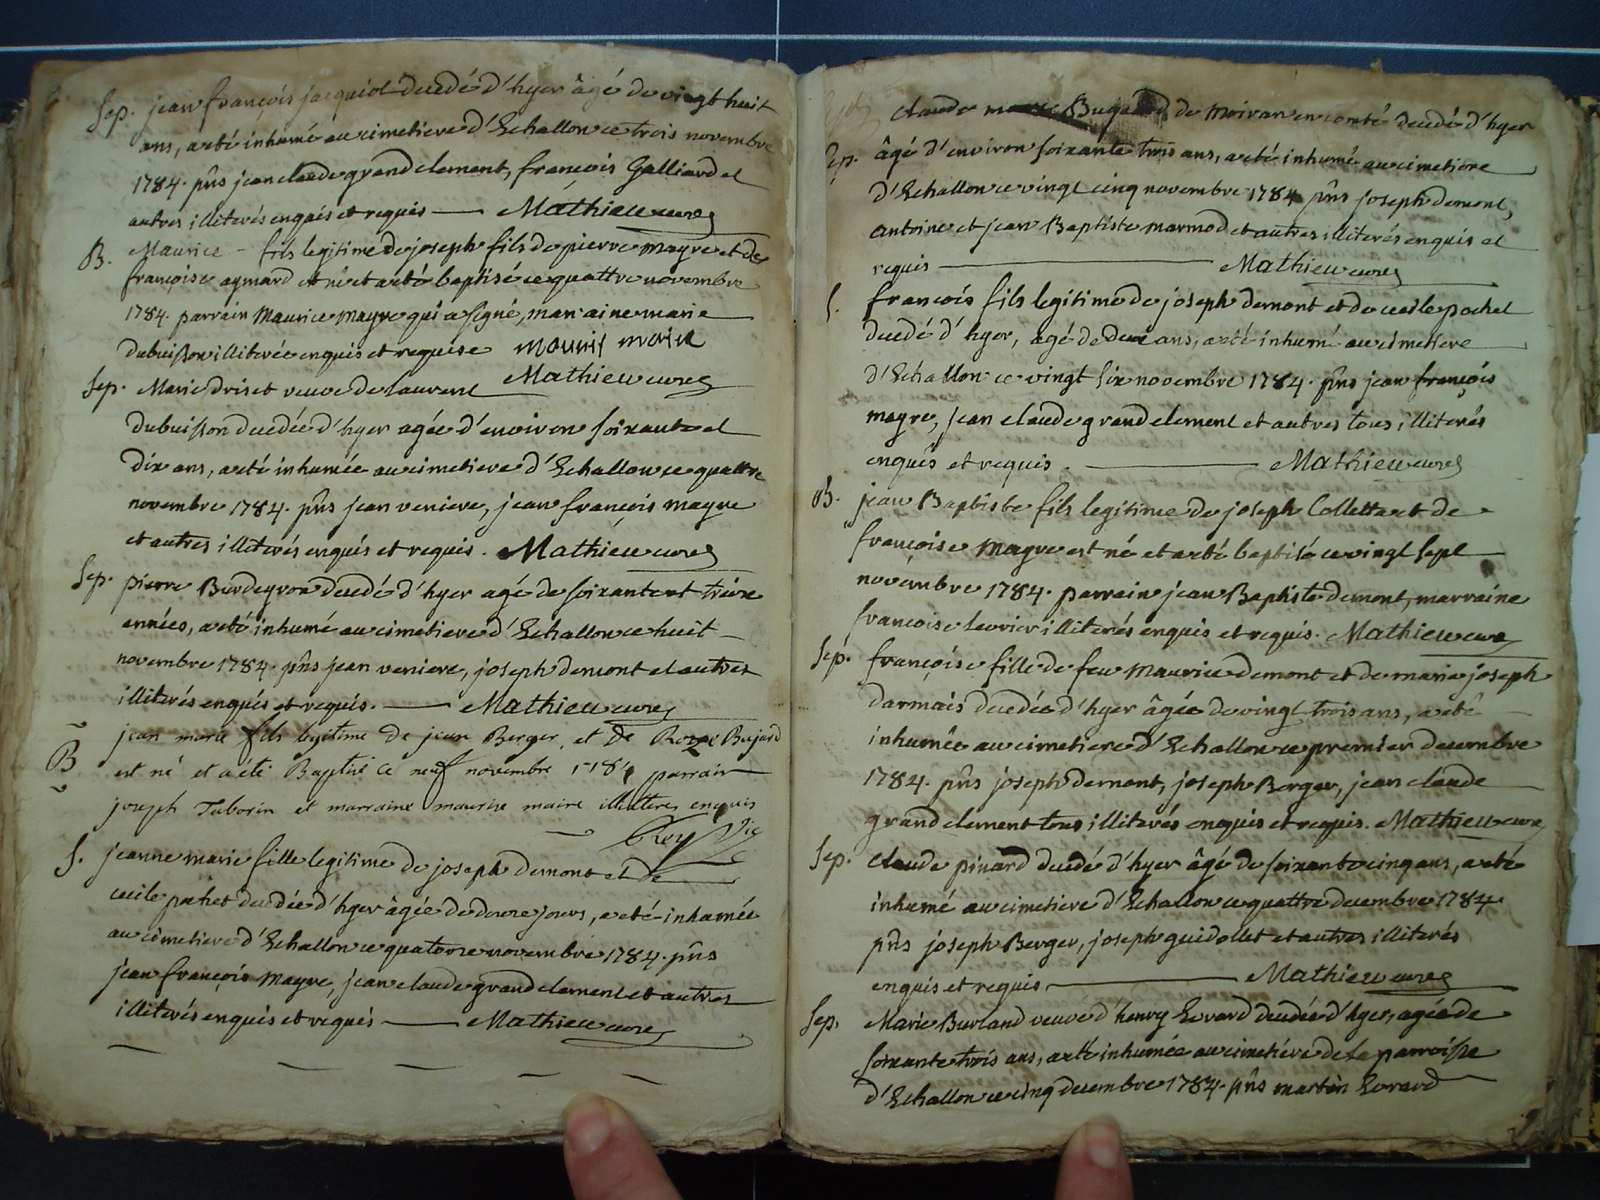 Sep. jean françois jacquiot decedé d'hyer âgé de vingt huit
ans, a eté inhumé au cimetiere d'Echallon ce trois novembre
1784. pñs jean claude grand clement, françois Galliard et
autres illiterés enquis et requis — Mathieu curé
B. Maurice - fils legitime de joseph fils de pierre mayre et de
françoise aymard est né et a eté baptisé ce quattre novembre
1784. parrain Maurice mayre qui a signé, marraine marie
dubuisson illiterée enquis et requise mouris maire
Mathieu curé
Sep. Marie driset veuve de laurent
dubuisson decedée d'hyer agée d'environ soixante et
dix ans, a eté inhumée au cimetiere d'Echallon ce quattre
novembre 1784. pñs jean veniere, jean françois mayre
et autres illiterés enquis et requis. Mathieu curé
Sep. pierre Burdeyron decedé d'hyer agé de soixante et treize
années, a eté inhumé au cimetiere d'Echallon ce huit
novembre 1784. pñs jean veniere, joseph demont et autres
illiterés enquis et requis. — Mathieu curé
B jean marie fils legitime de jean Berger, et de Roze Bujard
est né et a été Baptisé ce neuf novembre 1784 parrain
joseph Taborin et marraine maurise maire illitteres enquis
Grey Vic
S. jeanne marie fille legitime de joseph demont et de
cecile pochet decedée d'hyer âgée de douze jours, a eté inhumée
au cimetiere d'Echallon ce quatorze novembre 1784. pñs
jean françois Mayre, jean claude grand clement et autres
illiterés enquis et requis — Mathieu curé
Sep. claude Bugard de moiran en comté decedé d'hyer
âgé d'environ soixante trois ans, a eté inhumé au cimetiere
d'Echallon ce vingt cinq novembre 1784 pñs joseph demont,
antoine et jean Baptiste marmod et autres illiterés enquis et
requis — Mathieu curé
S. françois fils legitime de joseph demont et de cecile pochet
decedé d'hyer, agé de deux ans, a eté inhumé au cimetiere
d'Echallon ce vingt six novembre 1784. pñs jean françois
mayre, jean claude grand clement et autres tous illiterés
enquis et requis. — Mathieu curé
B. jean Baptiste fils legitime de joseph Collette et de
françoise Mayre est né et a eté baptisé ce vingt sept
novembre 1784. parrain jean Baptiste demont, marraine
françoise levrier illiterés enquis et requis. Mathieu curé
Sep. françoise fille de feu Maurice demont et de marie joseph
darmais decedée d'hyer âgée de vingt trois ans, a eté
inhumée au cimetiere d'Echallon ce premier decembre
1784. pñs joseph demont, joseph Berger, jean claude
grand clement tous illiterés enquis et requis. Mathieu curé
Sep. claude pinard decedé d'hyer âgé de soixante cinq ans, a eté
inhumé au cimetiere d'Echallon ce quattre decembre 1784
pñs joseph Berger, joseph guidollet et autres illiterés
enquis et requis — Mathieu curé
Sep. Marie Burland veuve d'henry Evrard decedée d'hyer, agée de
soixante trois ans, a eté inhumée au cimetiere de la parroisse
d'Echallon ce cinq decembre 1784. pñs martin Evrard